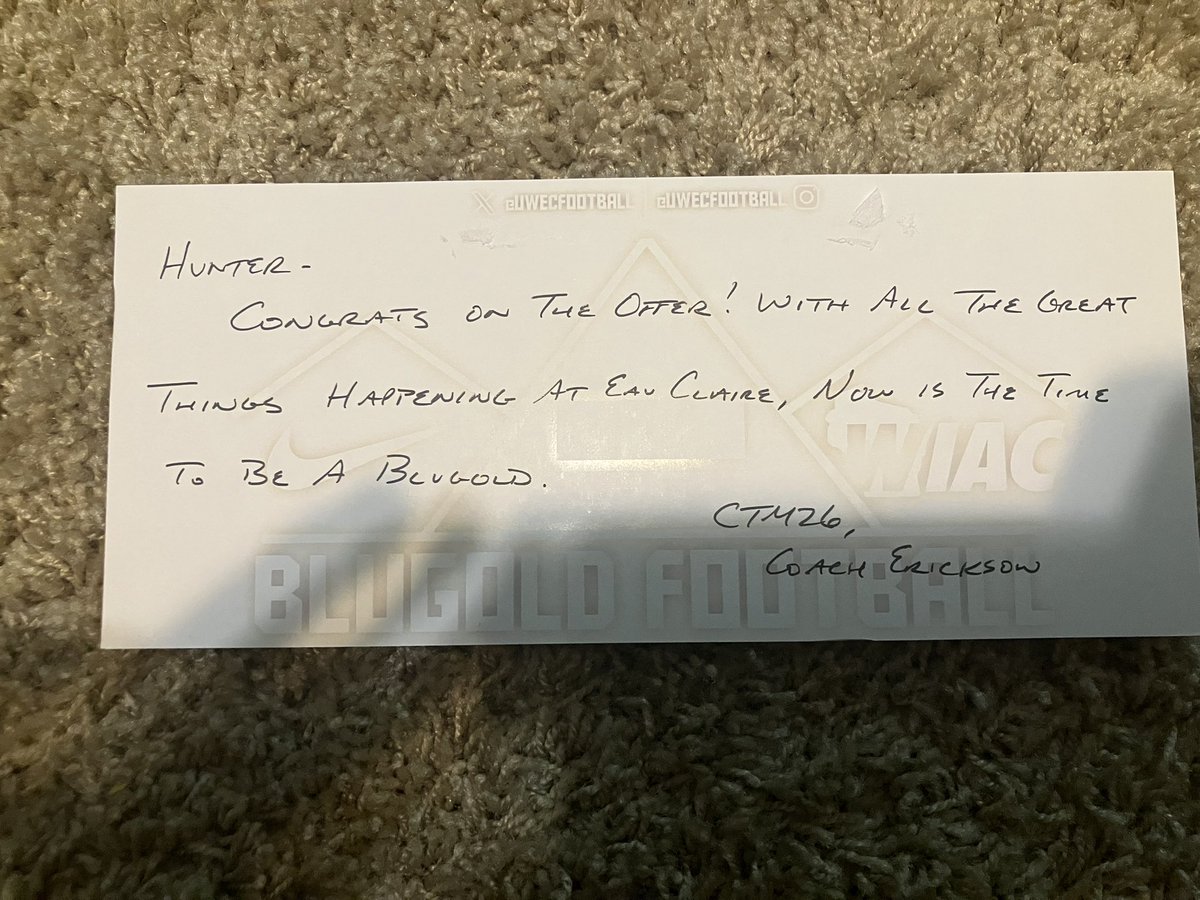 @UWECFOOTBALL @UWECFOOTBALL
HUNTER-
CONGRATS ON THE OFFER! WITH ALL THE GREAT
THINGS HAPPENING AT EAU CLAIRE, NOW IS THE TIME
TO BE A BLUGOLD.
WIAC
CTM26,
COACH ERICKSON
BLUGOLD FOOTBALL